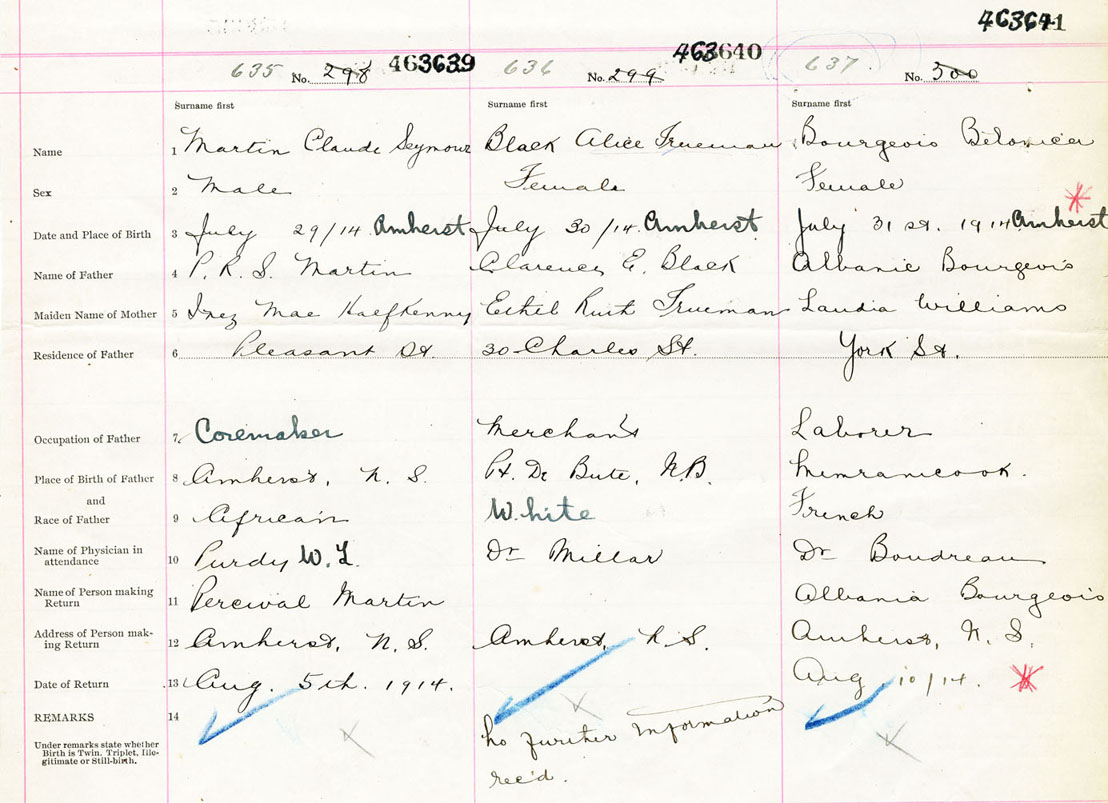 463641
635 No. 298 463639 636 No. 299 463640 637 No. 300
Surname first Surname first Surname first
Name 1 Martin Claude Seymour Black Alice Trueman Bourgeois
Sex 2 Male Female Female
Date and Place of Birth 3 July 29/14 Amherst July 30/14 Amherst July 31 st. 1914 Amherst
Name of Father 4 P. R. S. Martin Clarence E. Black Albanie Bourgeois
Maiden Name of Mother 5 Inez Mae Halfkenny Ethel Ruth Trueman Laudia Williams
Residence of Father 6 Pleasant St. 30 Charles St. York St.
Occupation of Father 7 Coremaker Merchant Laborer
Place of Birth of Father 8 Amherst, N. S. Pt. De Bute, N.B. Memramcook.
and
Race of Father 9 African White French
Name of Physician in
attendance 10 Purdy W. L. Dr Millar Dr Boudreau
Name of Person making
Return 11 Percival Martin Albania Bourgeois
Address of Person mak-
ing Return 12 Amherst, N. S. Amherst, N. S. Amherst, N. S.
Date of Return 13 Aug. 5th. 1914. Aug. 10/14.
REMARKS 14
Under remarks state whether
Birth is Twin, Triplet, Ille-
gitimate or Still-birth.
No further Information
rec'd.